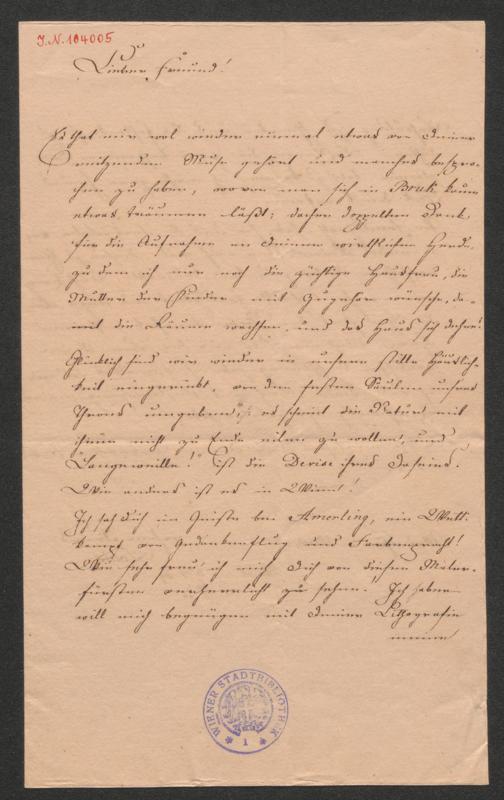 J.N. 104005
Lieber Freund!
Es that mir wol wieder einmal etwas von Deiner
reitzenden Muse gehört und manches bespro-
chen zu haben, wovon man sich in Bruk kaum
etwas träumen läßt; daher doppelten Dank
für die Aufnahme an Deinem wirthlichen Herde,
zu dem ich nur noch die züchtige Hausfrau, die
Mutter der Kinder mit Zugehör wünsche, da-
mit die Räume wachsen, und das Haus sich dehne!
Glücklich sind wir wieder in unsere stille Häuslich-
keit eingerückt, von den festen Säulen unseres
Throns umgeben, es scheint die Natur mit
ihnen nicht zu Ende eilen zu wollen, und
"Langeweille!" ist die Devise ihres Daseins.
Wie anders ist es in Wien!
Ich sah Dich im Geiste bei Amerling, ein Welt-
kampf von Gedankenflug und Farbenpracht!
Wie sehr freu' ich mich Dich von diesem Maler-
fürsten verherrlicht zu sehen! Ich selber
will mich begnügen mit Deiner Lithografie
meine
WIENER STADTBIBLIOTHEK
1